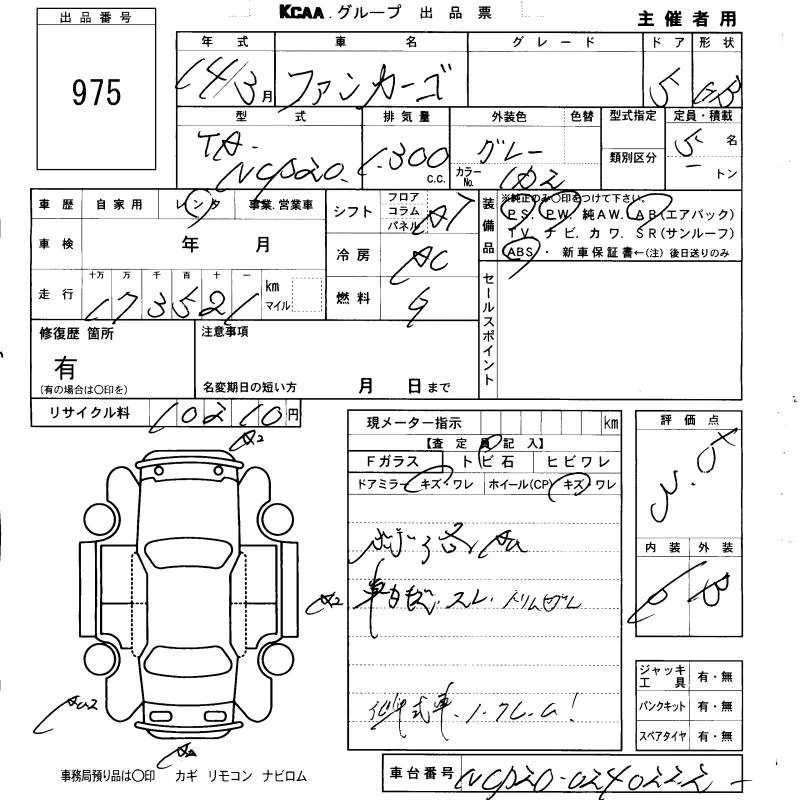 KCAA.グループ 出品票
主催者用
出品番号
975
年式 車名 グレード ドア 形状
14/3月 ファンカーゴ 5 GB
型式 排気量 外装色 色替 型式指定 定員・積載
TA-
NCP20. 1.300 c.c. グレー カラーNo. 1D2 類別区分 5名
トン
車歴 自家用 レンタ 事業.営業車
シフト フロア コラム パネル AT
装備品 ※純正のみ〇印をつけて下さい。
PS. PW. 純AW. AB(エアバック)
TV. ナビ. カワ. SR(サンルーフ)
ABS ・ 新車保証書←(注)後日送りのみ
車検 年 月
冷房 AC
走行 十万 万 千 百 十 一
173521 km マイル
燃料 G
セールスポイント
修復歴 箇所
有
(有の場合は〇印を)
注意事項
名変期日の短い方 月 日まで
リサイクル料 10210円
現メーター指示 km
【査定員記入】
Fガラス トビ石 ヒビワレ
ドアミラー キズ・ワレ ホイール(CP) キズ・ワレ
評価点
内装 外装
B
A2
A2
車内 スレ.
年式車.ノークレーム!
ジャッキ工具 有・無
パンクキット 有・無
スペアタイヤ 有・無
事務局預り品は〇印 カギ リモコン ナビロム
車台番号 NCP20-0240222-